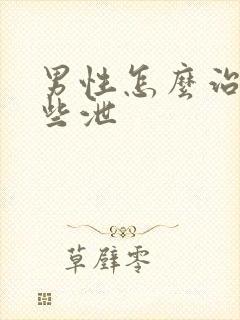 男性怎麼治
些泄
草壁零